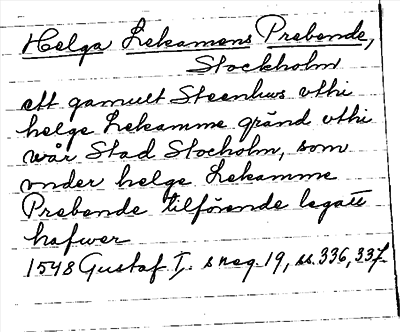 Helga Lekamens Prebende,
Stockholm
ett gamult Steenhws vthi
helge Lekamme gränd vthi
wår Stad Stocholm, som
vnder helge Lekamme
Prebende tilförende legatt
hafwer
1548 Gustaf I. s reg. 19, ss. 336, 337.